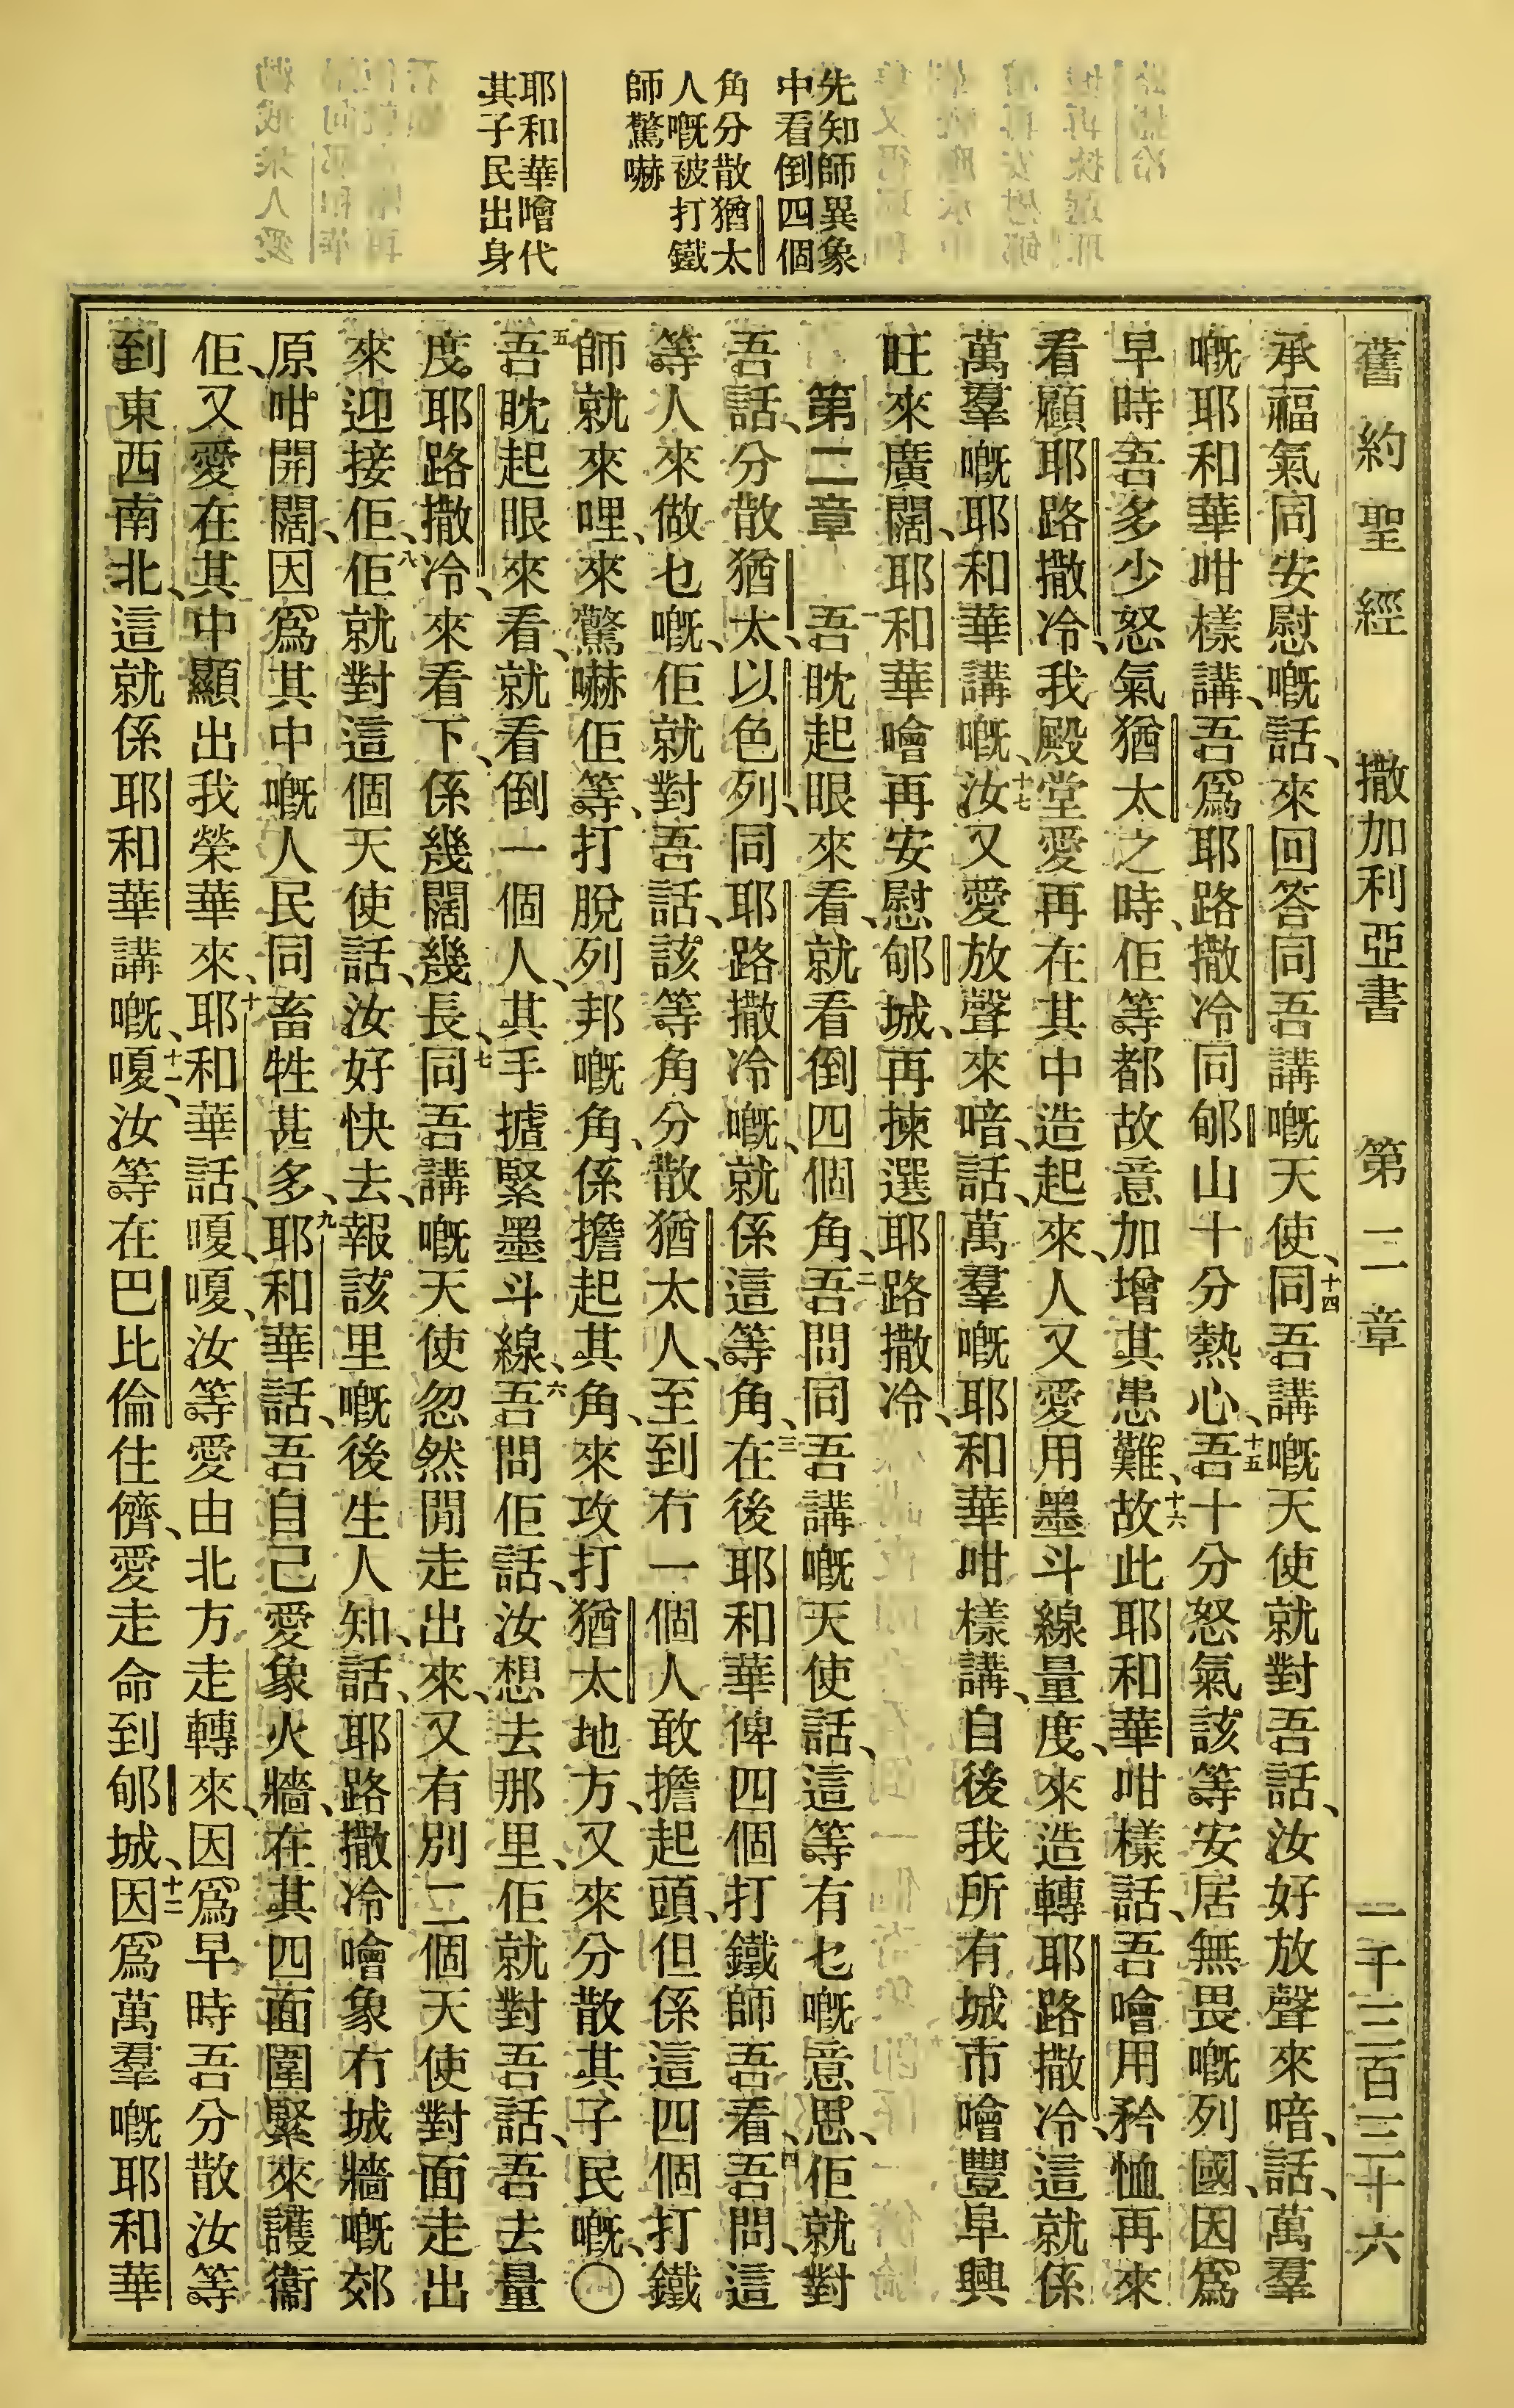 先知師異象
中看倒四個
角分散猶太
人嘅被打鐵
師驚嚇
耶和華噲代
其子民出身
舊約聖經 撒加利亞書 第二章 一千三百三十六
承福氣同安慰嘅話、來回答同吾講嘅天使、十四同吾講嘅天使就對吾話、汝好放聲來喑、話、萬羣
嘅耶和華咁樣講、吾爲耶路撒冷同郇山十分熱心、十五吾十分怒氣該等安居無畏嘅列國、因爲
早時吾多少怒氣猶太之時、佢等都故意加增其患難、十六故此耶和華咁樣話、吾噲用矜恤再來
看顧耶路撒冷、我殿堂愛再在其中造起來、人又愛用墨斗線量度、來造轉耶路撒冷、這就係
萬羣嘅耶和華講嘅、十七汝又愛放聲來喑、話、萬羣嘅耶和華咁樣講、自後我所有城市噲豐阜興
旺來廣闊、耶和華噲再安慰郇城、再揀選耶路撒冷、
第二章 一吾眈起眼來看、就看倒四個角、二吾問同吾講嘅天使話、這等有乜嘅意思、佢就對
吾話、分散猶太、以色列、同耶路撒冷嘅、就係這等角、三在後耶和華俾四個打鐵師吾看、四吾問、這
等人來做乜嘅、佢就對吾話、該等角分散猶太人、至到冇一個人敢擔起頭、但係這四個打鐵
師就來哩、來驚嚇佢等、打脫列邦嘅角、係擔起其角、來攻打猶太地方、又來分散其子民嘅、〇
五吾眈起眼來看、就看倒一個人、其手摣緊墨斗線、六吾問佢話、汝想去那里、佢就對吾話、吾去量
度耶路撒冷、來看下、係幾闊幾長、七同吾講嘅天使忽然閒走出來、又有別二個天使對面走出
來迎接佢、八佢就對這個天使話、汝好快去、報該里嘅後生人知、話、耶路撒冷噲象冇城牆嘅郊
原咁開闊、因爲其中嘅人民同畜牲甚多、九耶和華話、吾自己愛象火牆、在其四面圍緊來護衞
佢、又愛在其中顯出我榮華來、十耶和華話、嗄、嗄、汝等愛由北方走轉來、因爲早時吾分散汝等
到東西南北、這就係耶和華講嘅、十一嗄、汝等在巴比倫住儕、愛走命到郇城、十二因爲萬羣嘅耶和華